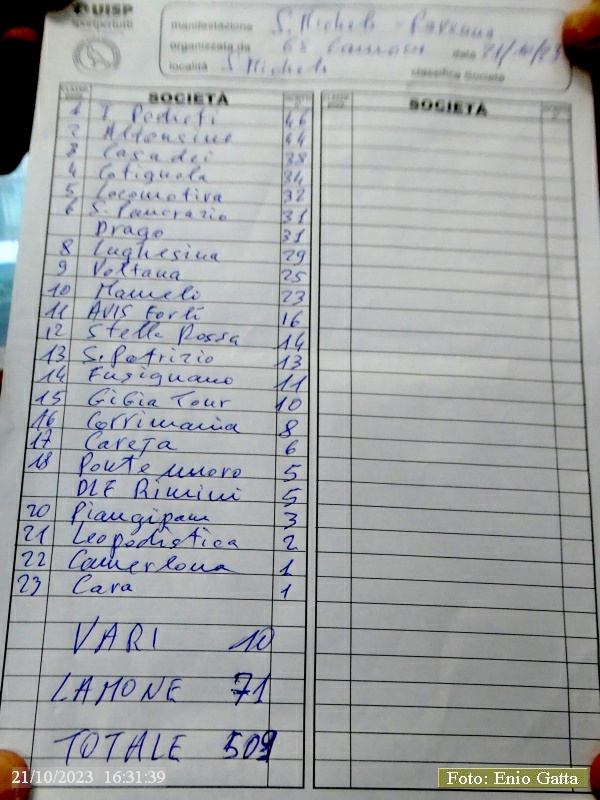 UISP
sportpertutti
manifestazione S. Michele - Ravenna
organizzata da GS Lamone data 21/10/23
località S. Michele classifica Società
SOCIETÀ SOCIETÀ
1 I Pedreti 46
2 Alfonsine 44
3 Casadei 38
4 Cotignola 34
5 Locomotiva 32
6 S. Pancrazio 31
Drago 31
8 Lughesina 29
9 Voltana 25
10 Mameli 23
11 AVIS Forlì 16
12 Stella Rossa 14
13 S. Patrizio 13
14 Fusignano 11
15 GiGia Tour 10
16 Corrimania 8
17 Careja 6
18 Ponte nuovo 5
DLF Rimini 5
20 Piangipane 3
21 Leopodistica 2
22 Camerlona 1
23 Cava 1
VARI 10
LAMONE 71
TOTALE 509
21/10/2023 16:31:39
Foto: Enio Gatta